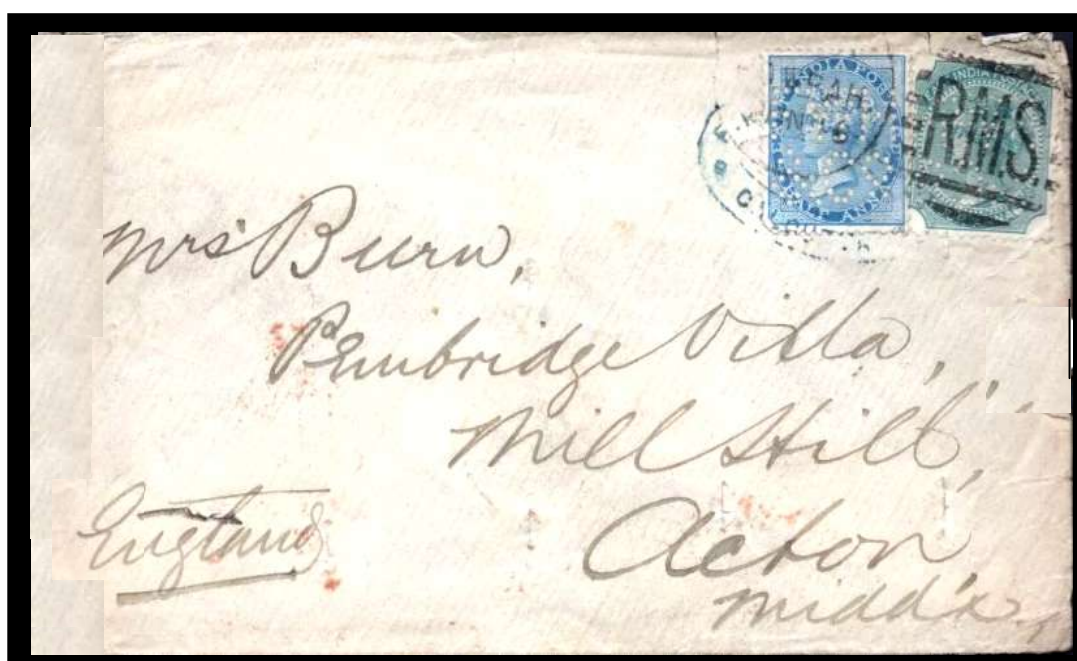 INDIA POS
HALF ANNA
INDIA POSTAGE
R.M.S.
Mrs Burn,
Pembridge Villa,
Mill Hill,
Acton
Midd'x.
England